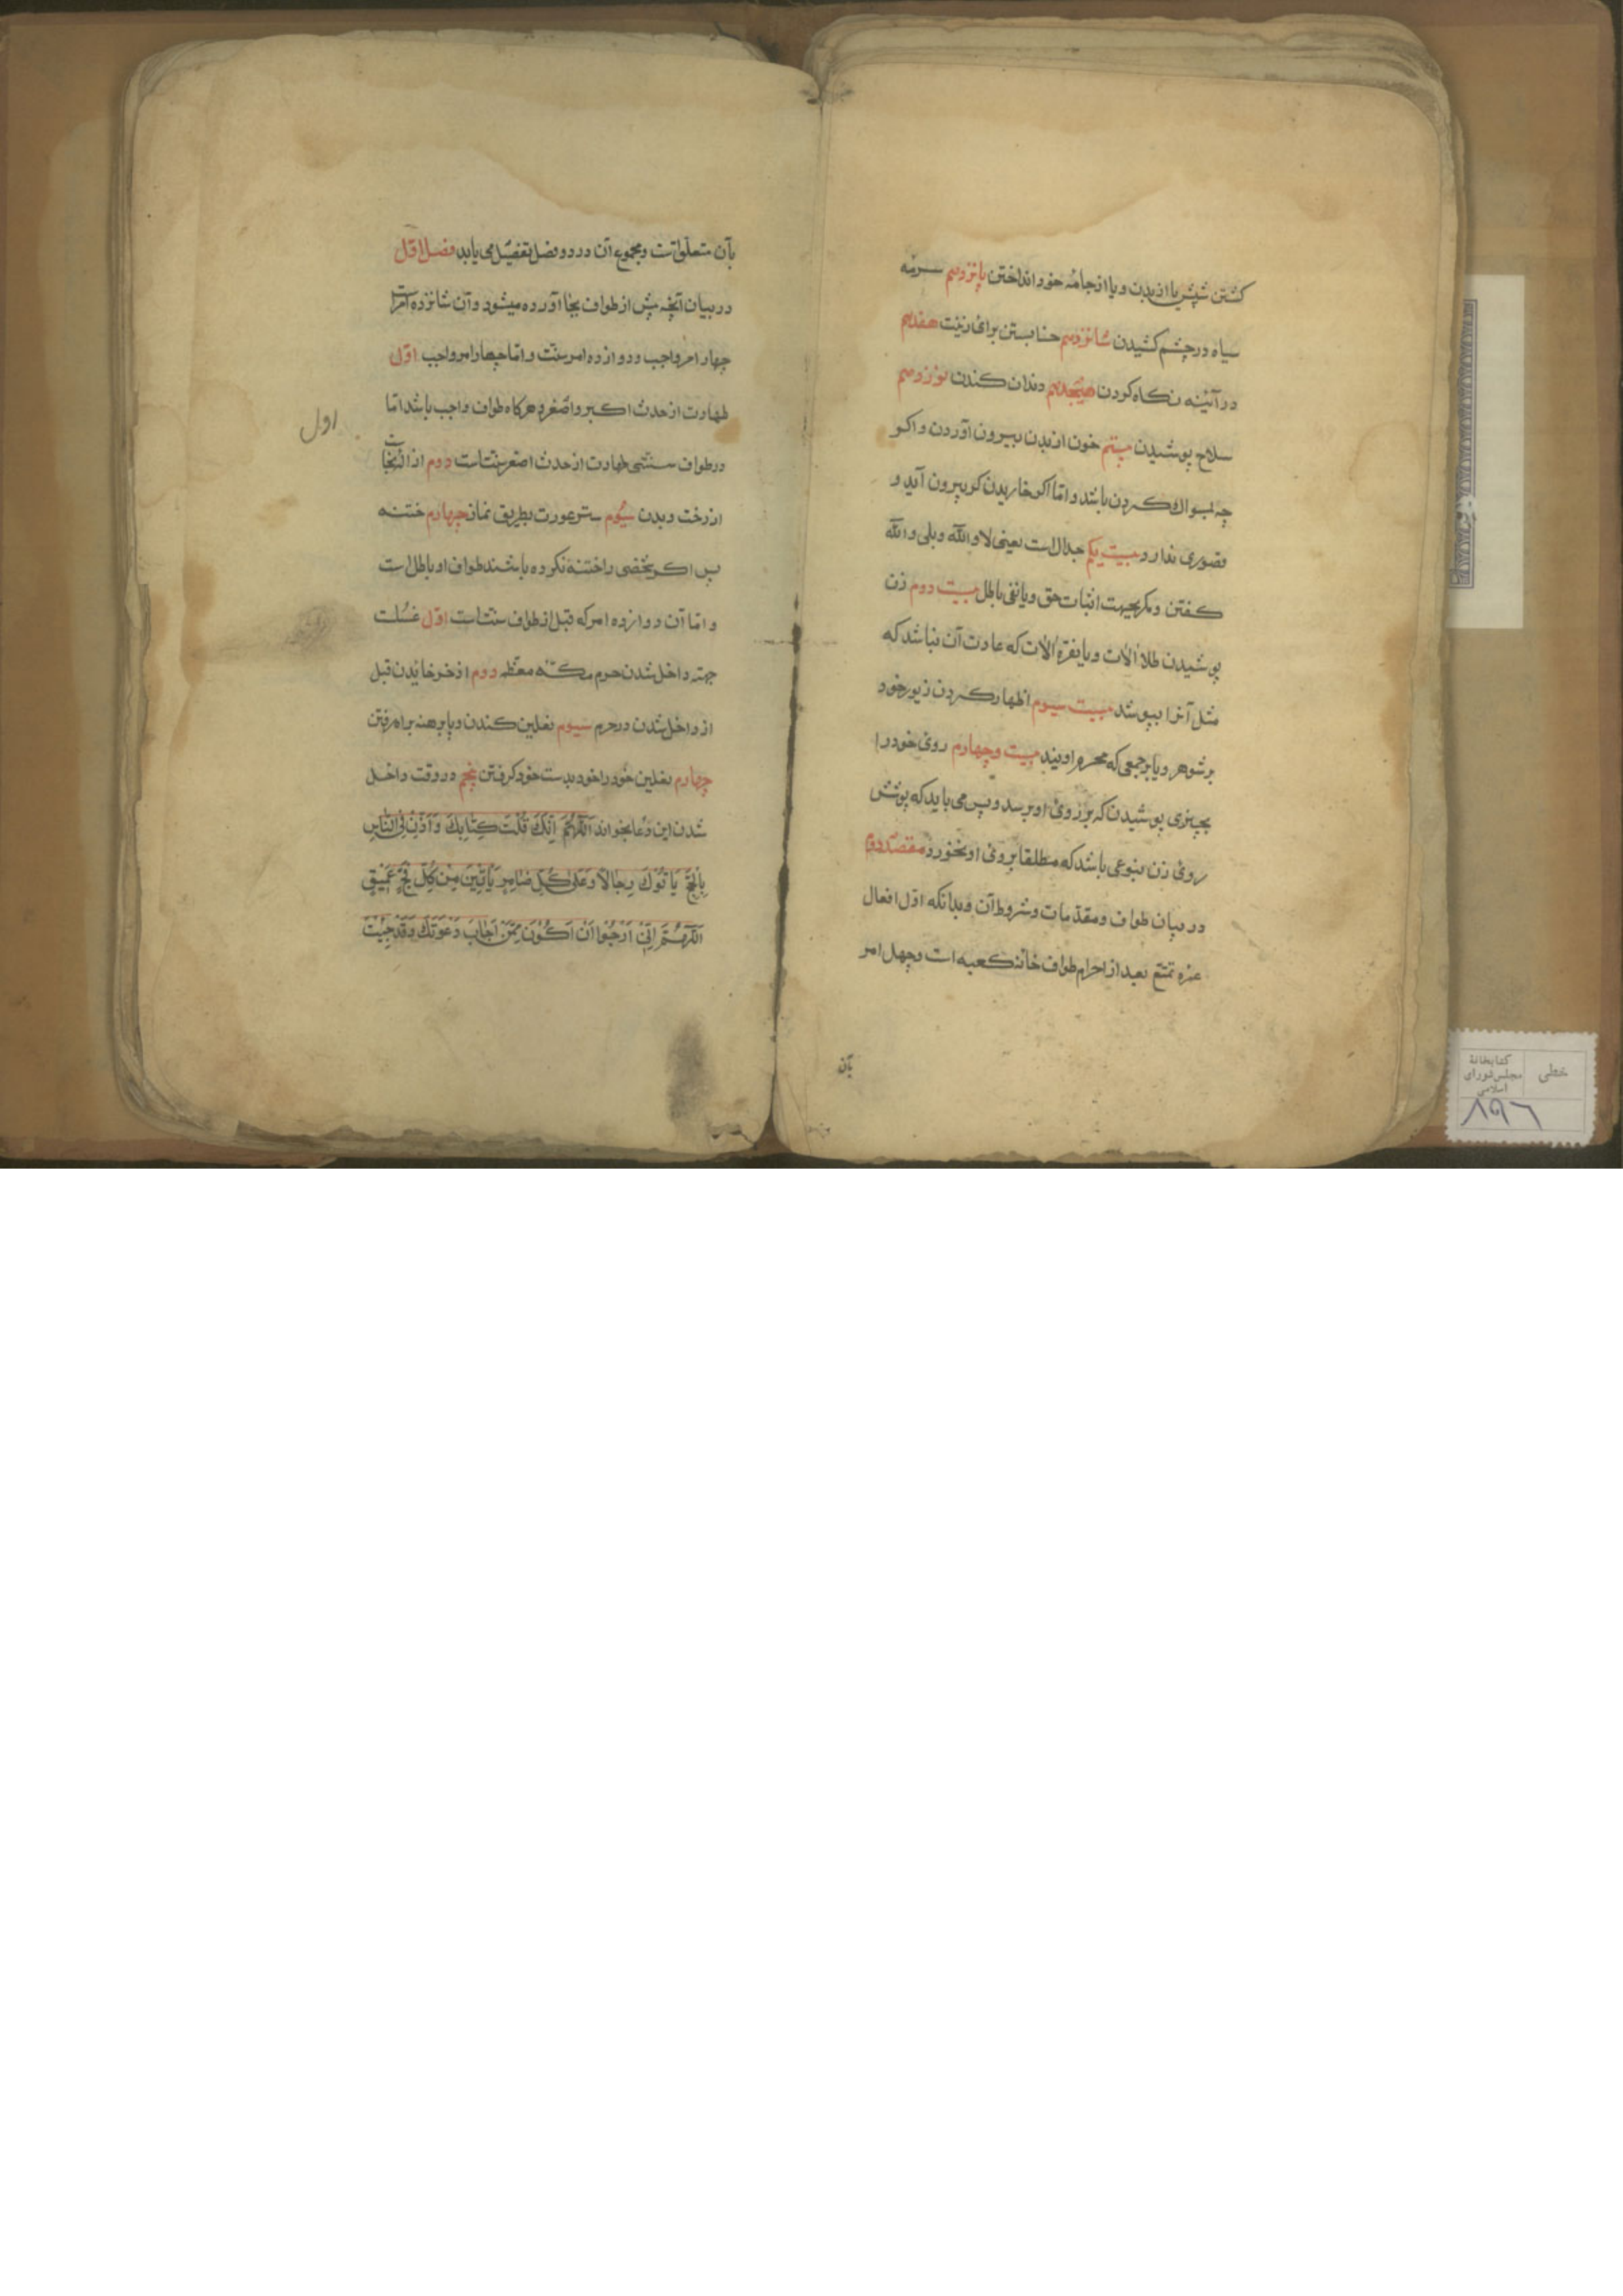 کشتن شپش یا از بدن و یا از جامهٔ خود انداختن پانزدهم سرمه
سیاه در چشم کشیدن شانزدهم حنا بستن برای زینت هفدهم
در آئینه نکاه کردن هیجدهم دندان کندن نوزدهم
سلاح پوشیدن بیستم خون از بدن بیرون آوردن و اکر
چه بمسواک کردن باشد و اما اکر خاریدن کر بیرون آید و
قصوری ندارد بیست یکم جدال است یعنی لا والله و بلی والله
کفتن و مکر بجهت اثبات حق و یا نفی باطل بیست دوم زن
پوشیدن طلا الات و یا نقره الات که عادت آن نباشد که
مثل آنرا بپوشد بیست سیوم اظهار کردن زیور خود
بر شوهر و یا بر جمعی که محرم اویند بیست و چهارم روی خود را
بچیزی پوشیدن که بر روی او برسد و پس می باید که پوشش
روی زن بنوعی باشد که مطلقا بروی او نخورد مقصد دوم
در بیان طواف و مقدمات و شروط آن و بدانکه اول افعال
عمره تمتع بعد از احرام طواف خانه کعبه است و چهل امر
بآن
بآن متعلق است و مجموع آن در دو فصل تفصیل می یابد فصل اول
در بیان آنچه پیش از طواف بجا آورده میشود و آن شانزده امر است
چهار امر واجب و دوازده امر سنت و اما چهار امر واجب اول
طهارت از حدث اکبر و اصغر هرکاه طواف واجب باشد اما
اول
در طواف سنتی طهارت از حدث اصغر سنت است دوم ازاله نجاست
از رخت و بدن سیوم ستر عورت بطریق نماز چهارم ختنه
پس اکر شخصی را ختنه نکرده باشند طواف او باطل است
و اما آن دوازده امر که قبل از طواف سنت است اول غسلست
جهته داخل شدن حرم مکه معظمه دوم اذخر خائیدن قبل
از داخل شدن در حرم سیوم نعلین کندن و پا برهنه براه رفتن
چهارم نعلین خود را خود بدست خود کرفتن پنجم در وقت داخل
شدن این دعا بخواند اَللّٰهُمَّ اِنَّکَ قُلْتَ کِتٰابِکَ وَ اَذِّنْ فِی النّٰاسِ
بِالْحَجِّ یَاْتُوکَ رِجٰالاً وَ عَلٰی کُلِّ ضٰامِرٍ یَاْتِینَ مِنْ کُلِّ فَجٍّ عَمِیْقٍ
اَللّٰهُمَّ اِنّی اَرْجُوا اَنْ اَکُوْنَ مِمَّنْ اَجٰابَ دَعْوَتَکَ وَ قَدْ جِئْتُ
خطی
کتابخانهٔ
مجلس شورای
اسلامی
۸۹۶